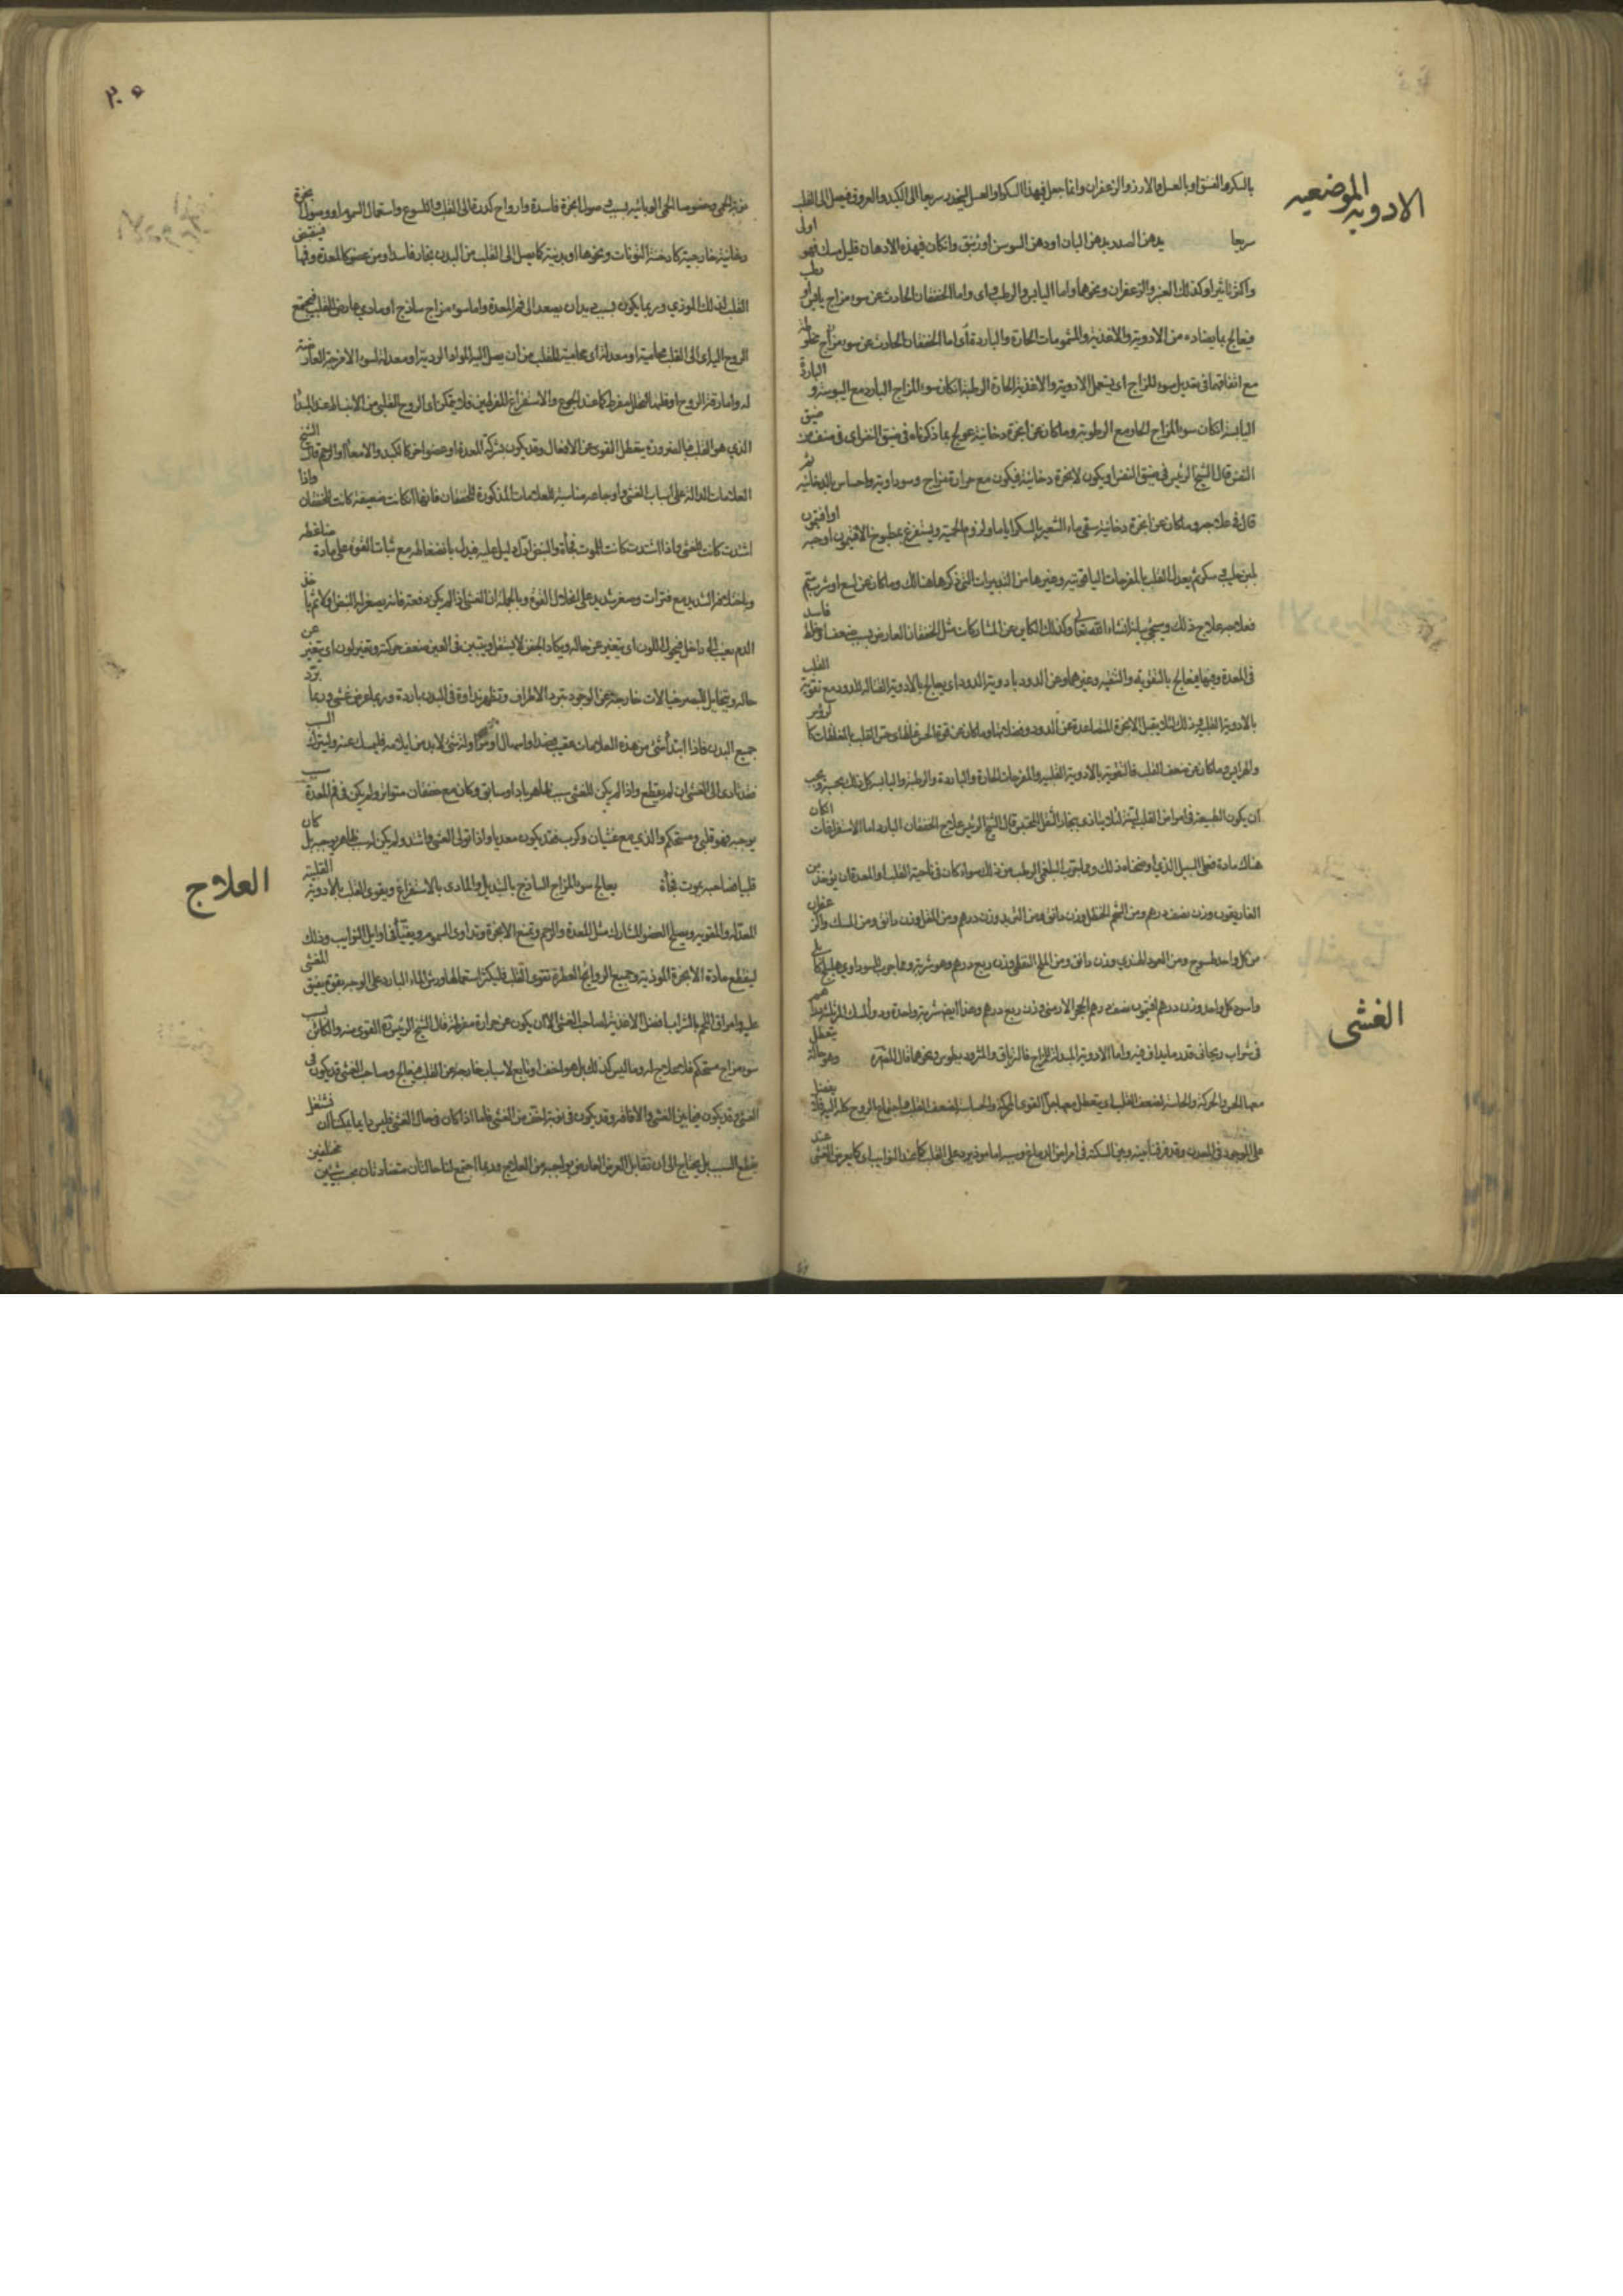 الادوية الموضعيه
بالسكر والفستق او بالعسل والارز والزعفران وانما جعل فيهذا السكر او العسل لينحدر سريعا الى الكبد والعروق فيصل الى القلب
سريعا يدهن الصدر بدهن البان او دهن السوسن او زنبق وان كان فيهذه الادهان قليل مسك فهو اولى
واكثر تاثيرا وكذلك العنبر والزعفران ونحوها واما اليابس والرطب اى واما الخفقان الحادث عن سوء مزاج يابس او رطب
فيعالج بما يضاده من الادوية والاغذية والمشمومات الحارة والباردة اى اما الخفقان الحادث عن سوء مزاج
مع اتفاقهما فى تعديل سوء المزاج اى يستعمل الادوية والاغذية الحارة الرطبة ان كان سوء المزاج البارد مع اليبوسة و الباردة
اليابسة ان كان سوء المزاج الحار مع الرطوبة وما كان عن ابخرة دخانية عولج بما ذكرناه فى ضيق النفس اى فى صنف من ضيق
النفس قال الشيخ الرئيس فى ضيق النفس او يكون لابخرة دخانية فيكون مع حرارة مزاج وسوداوية واحساس بالدخانية
قال فى علاجه وما كان عن ابخرة دخانية سقى ماء الشعير بالسكر اياما ولزوم الحمية ويستفرغ بمطبوخ الافتيمون او حبه
بلبن حليب سكرى ثم يعدل القلب بالمفرحات الياقوتية وغيرها من التدبيرات التى ذكرها هنالك وما كان عن لسع او شرب سم
فعلاجه علاج ذلك وسيجئ بيانه انشاء الله تعالى وكذلك الكاين عن المشاركات مثل الخفقان العارض بسبب ضعف او خلط فاسد
فى المعدة وفيها فيعالج بالتقوية والتنقية وغيرهما وعن الدود بادوية الدود اى يعالج بالادوية القتالة للدود مع تقوية القلب
بالادوية القلبية وذلك لئلا يقبل الابخرة المتصاعدة عن الدود وفضلاتها وما كان عن قوة الحس
والهرايس وما كان عن ضعف القلب فالتقوية بالادوية القلبية والمفرحات الحارة والباردة والرطبة واليابسة كل ذلك بحسبه ويجب
ان يكون الطبيعة فى امراض القلب لينة لئلا يتاذى ببخار الثفل المحتبس قال الشيخ الرئيس علاج الخفقان البارد اما الاستفراغات ان كان
هناك مادة فعلى السبيل الذى اوضحناه ذلك ومما جرب للبلغمى الرطب من ذلك سواء كان فى ناحية القلب او المعدة ان يوخذ من
الغاريقون وزن نصف درهم ومن الشحم الحنظل وزن دانق ومن التربد وزن درهم ومن المقل وزن دانق ومن المسك والزعفران
من كل واحد طسوج ومن العود الهندي وزن دانق ومن الملح النفطى وزن ربع درهم وهو شربة ومما جرب للسوداوى هليلج كابلى
واسود كل واحد وزن درهم افتيمون نصف درهم الحجر الارمنى وزن ربع درهم وهذا ايضا شربة واحدة
فى شراب ريحانى قدر ما يداف فيه واما الادوية المبدلة للمزاج فالترياق والمثروديطوس ونحوها قال المصنف وهو حالة يتعطل
الغشى
معها الحس والحركة لضعف القلب
على الموجود فى المعدن وقد فرقنا بينه وبين السكتة فى امراض الدماغ وسببه اما موذ يرد على القلب كما عند النوايب اى كما يعرض الغشى عند
٢٠٥
نوبة الحمى وخصوصا الحمى الوبائية بسبب صول ابخرة فاسدة وارواح كدرة الى القلب وفى اللسوع واستعمال السموم او وصول ابخرة
دخانية خارجية كادخنة التونات ونحوها او بدنية كما يصل الى القلب من البدن بخار فاسد او من عضو كالمعدة وفمها فينقبض
القلب لذلك الموذي وربما يكون بسبب ديدان يصعد الى فم المعدة واما سوء مزاج ساذج او مادي عارض للقلب فيجمع
الروح اليه
له واما رقة الروح او قلته التحلل مفرط كما عند الجوع والاستفراغ المفرطين فلا يتمكن اى الروح القلبى من الانبساط عند المبدا
الذي هو القلب فبالضرورة يتعطل القوى عن الافعال وقد يكون بشركة المعدة او عضو اخر كالكبد والامعا او الرحم قال الشيخ
العلامات الدالة على اسباب الغشى واوجاعه مناسبة للعلامات المذكورة للخفقان فانها ان كانت ضعيفة كانت للخفقان واذا
اشتدت كانت للغشى واذا اشتدت كانت للموت فجأة والنبض ادل دليل عليه فيدل بانضغاطه مع ثبات القوة على مادة ضاغطة
وباختلافه الشديد مع فترات وصغر شديد على انحلال القوة وبالجملة ان الغشى اذا لم يكن دفعة فانه يصغر له النبض اولا ثم ياخذ
الدم يغيب الى داخل فيحول اللون اى يتغير عن حاله ويكاد الجفن لا يستقل ويتبين فى العين ضعف حركة وتغير لون اى يتغير عن
حاله ويتخايل للبصر خيالات خارجة عن الوجود وتبرد الاطراف وتظهر نداوة فى البدن باردة وربما عرض غشى وربما برد
جميع البدن فاذا ابتدأ شئ من هذه العلامات عقيب فصد او اسهال او لشئ لابد من ايلامه فليمسك عنه وليترك
فقد تادى الى الغشى ان لم يقطع واذا لم يكن للغشى سبب ظاهر باد او سابق وكان مع خفقان متواتر ولم يكن فى فم المعدة سبب
يوجبه فهو قلبى ومستحكم والذي مع غثيان وكرب فقد يكون معديا واذا توالى الغشى واشتد ولم يكن له سبب ظاهر يوجبه بل كان
قلبيا فصاحبه يموت فجأة يعالج سوء المزاج الساذج بالتبديل والمادى بالاستفراغ ويقوى القلب بالادوية القلبية
العلاج
المعدلة والمقوية ويصلح العضو المشارك مثل المعدة والرحم وتمنع الابخرة وتداوى السموم ويقيأ فى اوايل النوايب وذلك
ليقطع مادة الابخرة الموذية وجميع الروائح العطرة تقوى القلب فليكثر استعمالها ورش الماء البارد على الوجه بقوة يفيق المغشى
عليه وامراق اللحم بالشراب افضل الاغذية لصاحب الغشى الا ان يكون عن حرارة مفرطة قال الشيخ الرئيس
سوء مزاج مستحكم فلا علاج له وما ليس كذلك بل هو اخف او تابع لاسباب خارجة عن القلب فيعالج وصاحب الغشى قد يكون فى
الغشى وقد يكون فيما بين الغشى والافاقة وقد يكون فى نوبة اخف من الغشى فاما اذا كان فى حال الغشى فليس دايما يمكننا ان نشتغل
بقطع السبب بل يحتاج الى ان نقابل العرض العارض بواجبه من العلاج وربما اجتمع لنا حاجتان متضادتان بحسب شيئين مختلفين